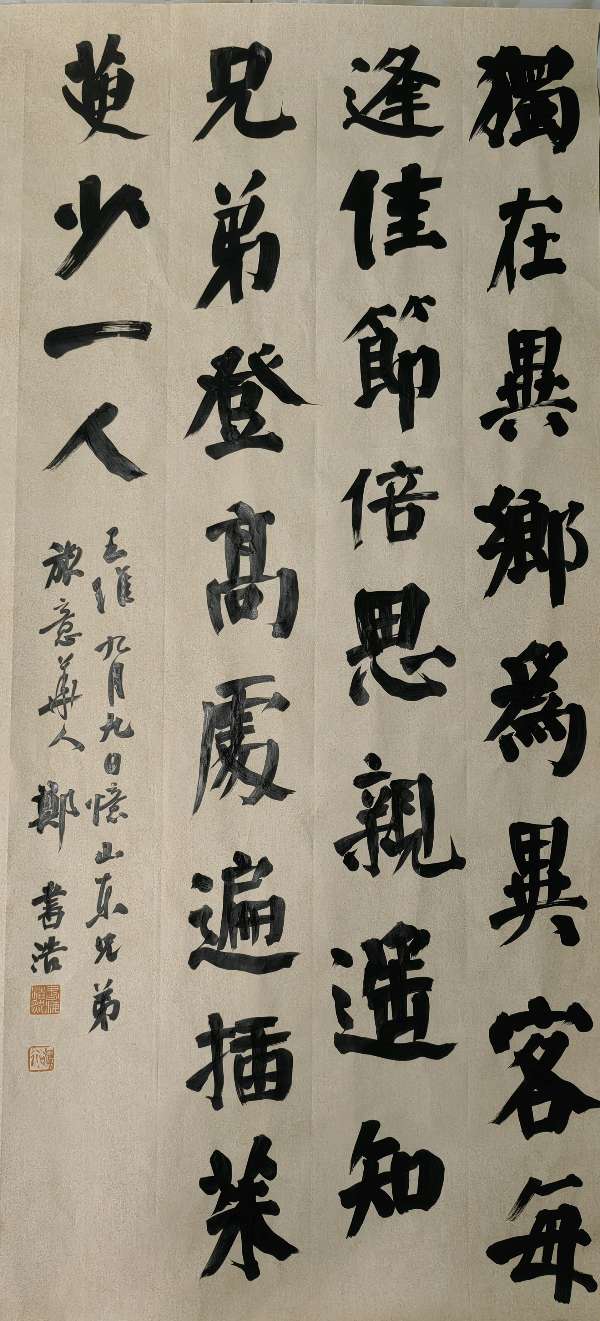 獨在異鄉為異客每
逢佳節倍思親遥知
兄弟登高處遍插茱
萸少一人
王維九月九日憶山東兄弟
旅意華人鄭書浩